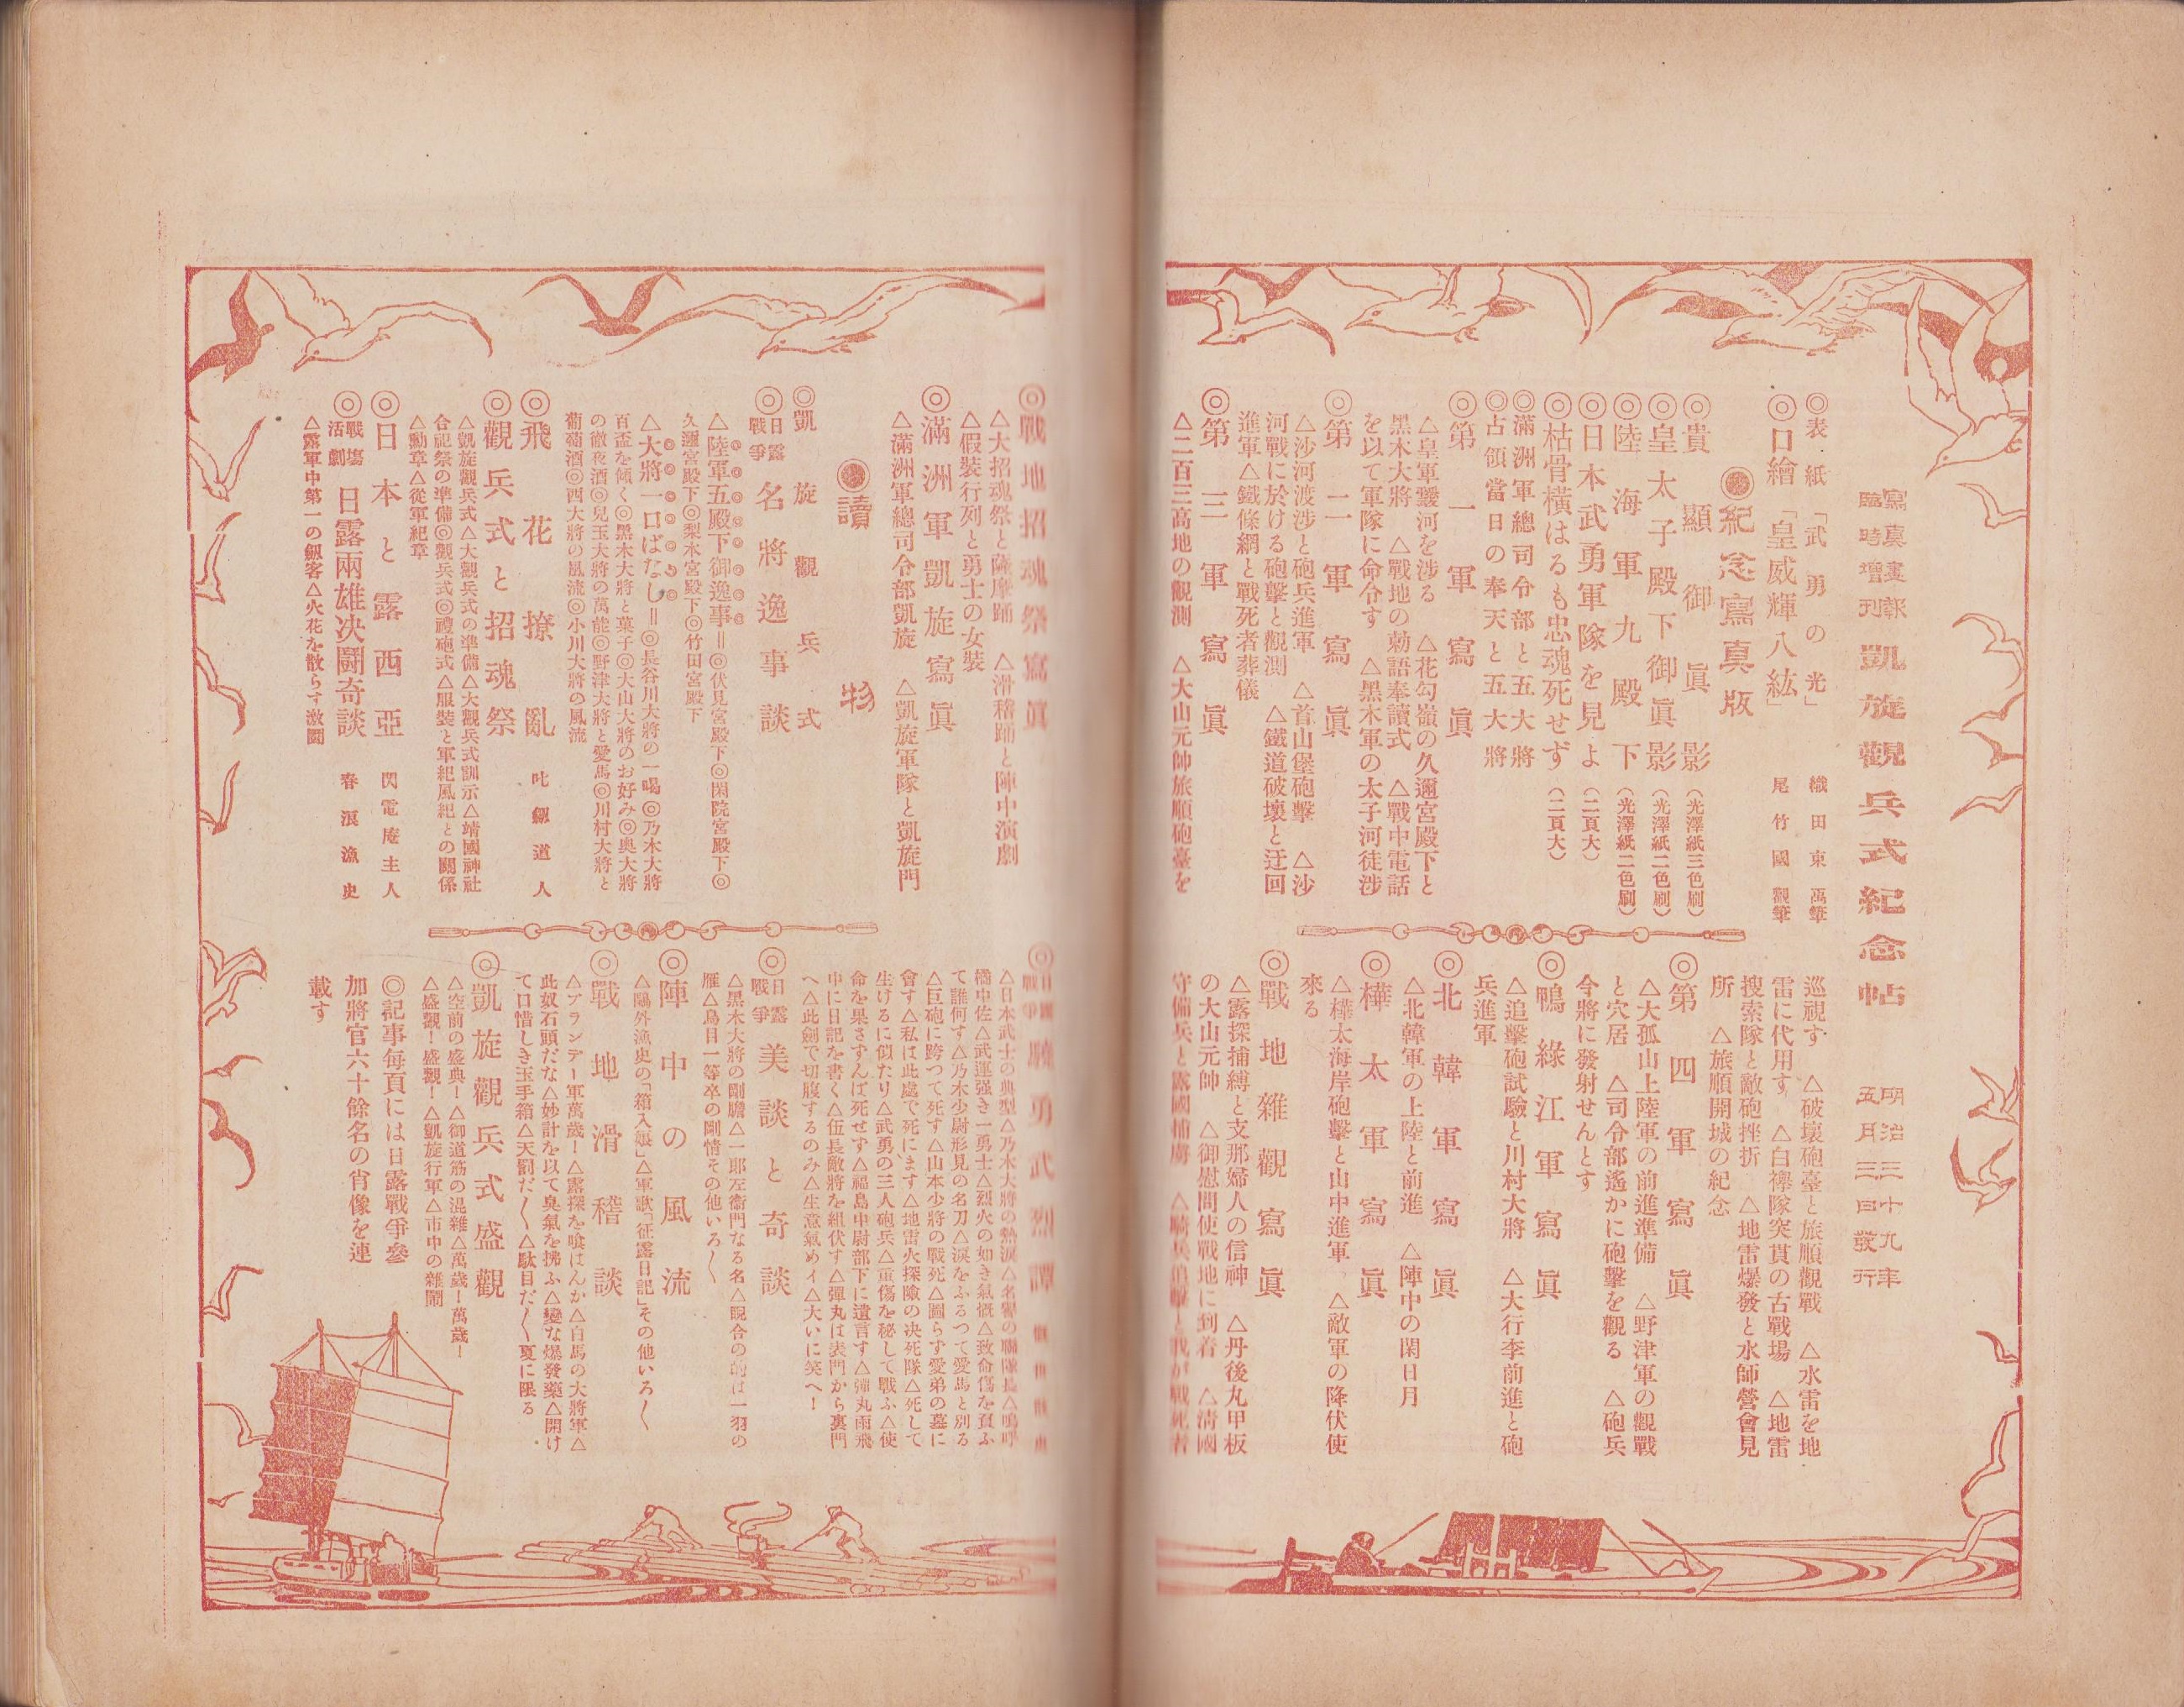 寫眞畫報
臨時增刊
凱旋觀兵式紀念帖
明治三十九年
五月三日發行
◎表紙「武勇の光」 織田東禹筆
◎口繪「皇威輝八紘」 尾竹國觀筆
◉紀念寫真版
◎貴顯御眞影（光澤紙三色刷）
◎皇太子殿下御眞影（光澤紙二色刷）
◎陸海軍九殿下（光澤紙二色刷）
◎日本武勇軍隊を見よ（二頁大）
◎枯骨橫はるも忠魂死せず（二頁大）
◎滿洲軍總司令部と五大將
◎占領當日の奉天と五大將
◎第一軍寫眞
△皇軍靉河を涉る △花勾嶺の久邇宮殿下と
黑木大將 △戰地の勅語奉讀式 △戰中電話
を以て軍隊に命令す △黑木軍の太子河徒涉
◎第二軍寫眞
△沙河渡涉と砲兵進軍 △首山堡砲擊 △沙
河戰に於ける砲擊と觀測 △鐵道破壞と迂回
進軍△鐵條網と戰死者葬儀
◎第三軍寫眞
△二百三高地の觀測 △大山元帥旅順砲臺を
巡視す △破壞砲臺と旅順觀戰 △水雷を地
雷に代用す △白襷隊突貫の古戰場 △地雷
搜索隊と敵砲挫折 △地雷爆發と水師營會見
所 △旅順開城の紀念
◎第四軍寫眞
△大孤山上陸軍の前進準備 △野津軍の觀戰
と穴居 △司令部遙かに砲擊を觀る △砲兵
今將に發射せんとす
◎鴨綠江軍寫眞
△追擊砲試驗と川村大將 △大行李前進と砲
兵進軍
◎北韓軍寫眞
△北韓軍の上陸と前進 △陣中の閑日月
◎樺太軍寫眞
△樺太海岸砲擊と山中進軍 △敵軍の降伏使
來る
◎戰地雜觀寫眞
△露探捕縛と支那婦人の信神 △丹後丸甲板
の大山元帥 △御慰問使戰地に到着 △淸國
守備兵と露國捕虜 △騎兵追擊と我が戰死者
◎戰地招魂祭寫眞
△大招魂祭と薩摩踊 △滑稽踊と陣中演劇
△假裝行列と勇士の女裝
◎滿洲軍凱旋寫眞
△滿洲軍總司令部凱旋 △凱旋軍隊と凱旋門
◉讀物
◎凱旋觀兵式
◎日露戰爭名將逸事談
△陸軍五殿下御逸事＝◎伏見宮殿下◎閑院宮殿下◎
久邇宮殿下◎梨本宮殿下◎竹田宮殿下
△大將一口ばなし＝◎長谷川大將の一喝◎乃木大將
百盃を傾く◎黑木大將と菓子◎大山大將のお好み◎奥大將
の徹夜酒◎兒玉大將の萬能◎野津大將と愛馬◎川村大將と
葡萄酒◎西大將の風流◎小川大將の風流
◎飛花撩亂 叱劔道人
◎觀兵式と招魂祭
△凱旋觀兵式△大觀兵式の準備△大觀兵式訓示△靖國神社
合祀祭の準備◎觀兵式◎禮砲式△服裝と軍紀風紀との關係
△勳章△從軍紀章
◎日本と露西亞 閃電庵主人
◎戰塲活劇 日露兩雄决鬪奇談 春浪漁史
△露軍中第一の劔客△火花を散らす激鬪
◎日露戰爭膽勇武烈譚
△日本武士の典型△乃木大將の熱淚△名譽の聯隊長△嗚呼
橘中佐△武運强き一勇士△烈火の如き氣慨△致命傷を負ふ
て誰何す△乃木少尉形見の名刀△淚をふるつて愛馬と別る
△巨砲に跨つて死す△山本少將の戰死△圖らず愛弟の墓に
會す△私は此處で死にます△地雷火探險の決死隊△死して
生けるに似たり△武勇の三人砲兵△重傷を秘して戰ふ△使
命を果さずんば死せず△福島中尉部下に遺言す△彈丸雨飛
中に日記を書く△伍長敵將を組伏す△彈丸は表門から裏門
へ△此劍で切腹するのみ△生意氣めイ△大いに笑へ！
◎日露戰爭美談と奇談
△黑木大將の剛膽△一耶左衞門なる名△睨合の的は一羽の
雁△鳥目一等卒の剛情その他いろ〱
◎陣中の風流
△鷗外漁史の「箱入娘」△軍歌「征露日記」その他いろ〱
◎戰地滑稽談
△ブランデー軍萬歲！△露探を喰はんか△白馬の大將軍△
此奴石頭だな△妙計を以て臭氣を拂ふ△變な爆發藥△開け
て口惜しき玉手箱△天罰だ〱△駄目だ〱夏に限る
◎凱旋觀兵式盛觀
△空前の盛典！△御道筋の混雜△萬歲！萬歲！
△盛觀！盛觀！△凱旋行軍△市中の雜鬧
◎記事每頁には日露戰爭參
加將官六十餘名の肖像を連
載す